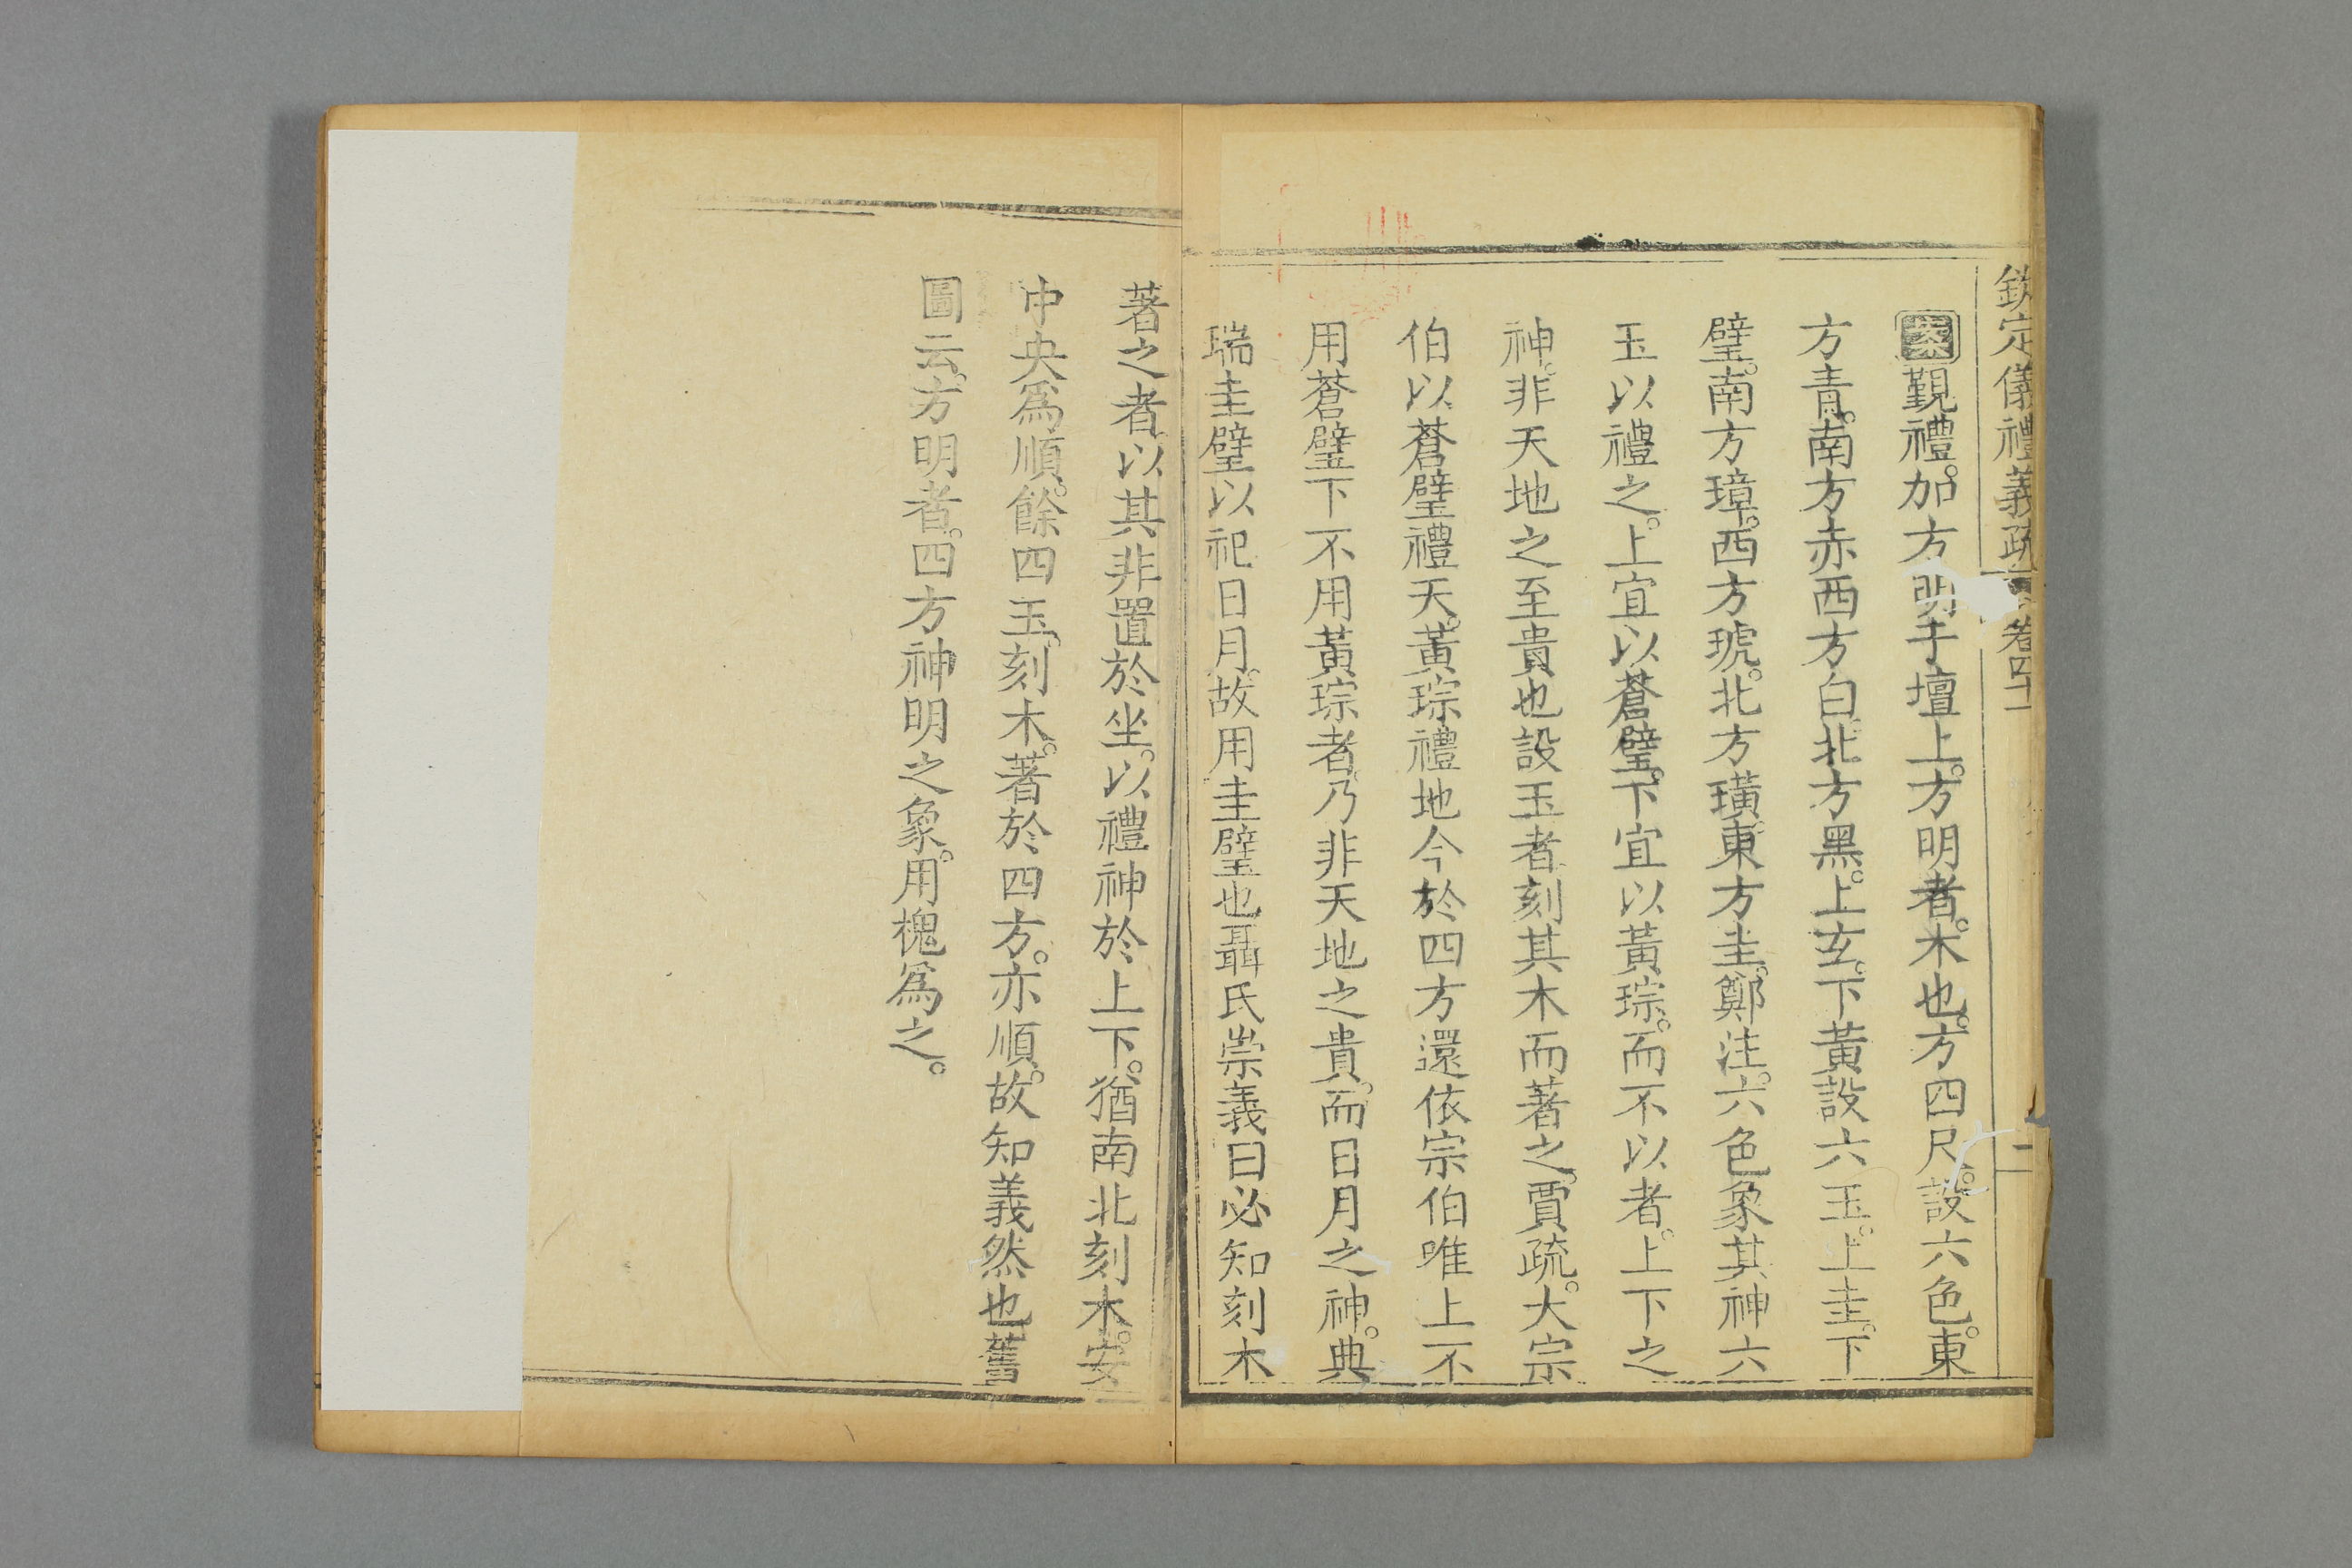 欽定儀禮義疏 卷四十一 二
案覲禮。加方明于壇上。方明者。木也。方四尺。設六色。東
方青。南方赤西方白。北方黑。上玄。下黃設六玉。上圭。下
璧。南方璋。西方琥。北方璜。東方圭。鄭注。六色象其神六
玉以禮之。上宜以蒼璧。下宜以黃琮。而不以者。上下之
神。非天地之至貴也設玉者刻其木而著之。賈疏。大宗
伯以蒼璧禮天。黃琮禮地今於四方還依宗伯唯上不
用蒼璧下不用黃琮者。乃非天地之貴。而日月之神。典
瑞圭璧以祀日月。故用圭璧也聶氏崇義曰必知刻木
著之者以其非置於坐。以禮神於上下。猶南北刻木。安
中央爲順。餘四玉。刻木。著於四方。亦順。故知義然也舊
圖云。方明者。四方神明之象。用槐爲之。